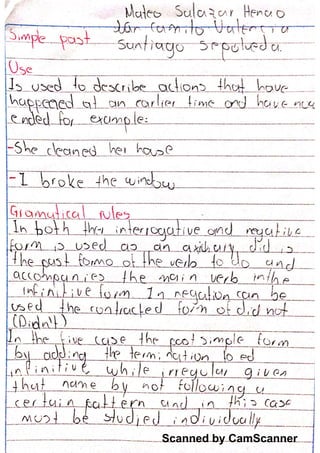 Mateo Salazar Henao
Camilo Valencia
Simple past
Santiago Sepulveda.
Use
Is used to describe actions that have
happened at an earlier time and have now
ended for example:
-She cleaned her house
-I broke the window
Gramatical rules
In both the interrogative and negative
form is used as an auxiliary, did is
the past forma of the verb to do and
accompanies the main verb in the
infinitive form. In negation can be
used the contracted form of did not
(Didn't)
In the five case the past simple form
by adding the termination to ed
infinitive while irregular given
that name by not following a
certain pattern and in this case
must be studied individually
Scanned by CamScanner